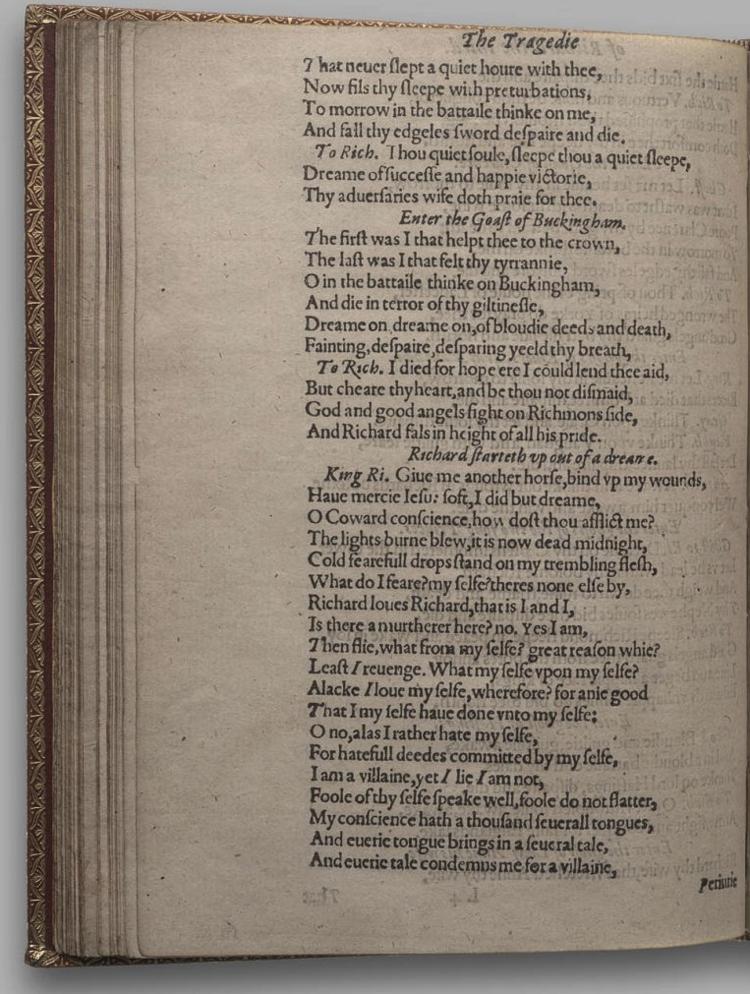 The Tragedie
That neuer ſlept a quiet houre with thee,
Now fils thy ſleepe with preturbations,
To morrow in the battaile thinke on me,
And fall thy edgeles ſword deſpaire and die.
To Rich. Thou quiet ſoule, ſleepe thou a quiet ſleepe,
Dreame of ſucceſſe and happie victorie,
Thy aduerſaries wife doth praie for thee.
Enter the Goaſt of Buckingham.
The firſt was I that helpt thee to the crown,
The laſt was I that felt thy tyrrannie,
O in the battaile thinke on Buckingham,
And die in terror of thy giltineſſe,
Dreame on dreame on, of bloudie deeds and death,
Fainting, deſpaire, deſparing yeeld thy breath,
To Rich. I died for hope ere I could lend thee aid,
But cheare thy heart, and be thou not diſmaid,
God and good angels fight on Richmons ſide,
And Richard fals in height of all his pride.
Richard ſtarteth vp out of a dreame.
King Ri. Giue me another horſe, bind vp my wounds,
Haue mercie Ieſu: ſoft, I did but dreame,
O Coward conſcience, how doſt thou afflict me?
The lights burne blew, it is now dead midnight,
Cold fearefull drops ſtand on my trembling fleſh,
What do I feare? my ſelfe? theres none elſe by,
Richard loues Richard, that is I and I,
Is there a murtherer here? no. Yes I am,
Then flie, what from my ſelfe? great reaſon whie?
Leaſt I reuenge. What my ſelfe vpon my ſelfe?
Alacke I loue my ſelfe, wherefore? for anie good
That I my ſelfe haue done vnto my ſelfe;
O no, alas I rather hate my ſelfe,
For hatefull deedes committed by my ſelfe,
I am a villaine, yet I lie I am not,
Foole of thy ſelfe ſpeake well, foole do not flatter,
My conſcience hath a thouſand ſeuerall tongues,
And euerie tongue brings in a ſeueral tale,
And euerie tale condemns me for a villaine,
Periurie